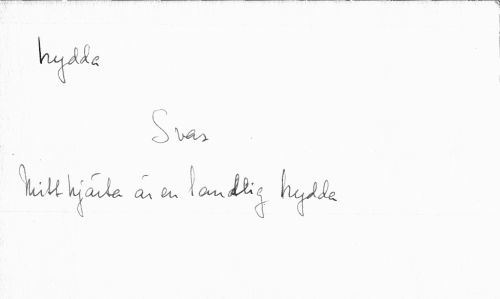 hydda
Svar
Mitt hjärta är en landtlig hydda